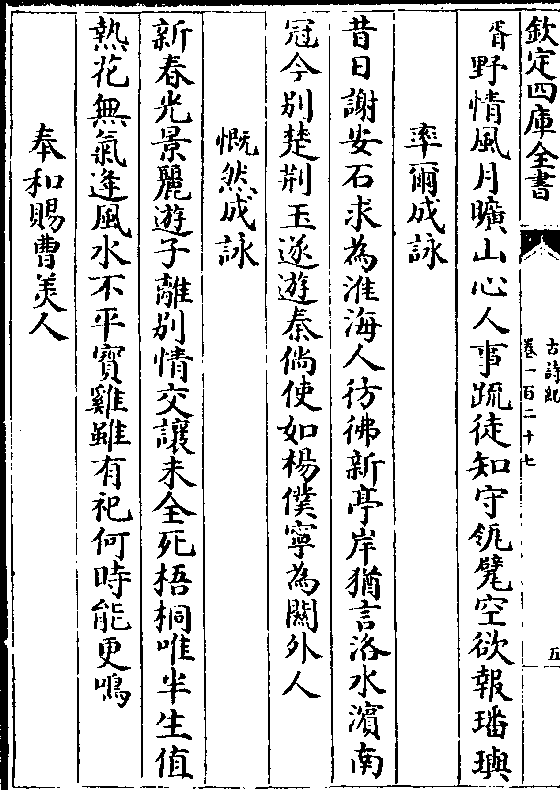 欽定四庫全書
古詩紀
卷一百二十七
五
胥野情風月曠山心人事踈徒知守瓴甓空欲報璠璵
率爾成詠
昔日謝安石求為淮海人彷彿新亭岸猶言洛水濵南
冠今别楚荆玉遂遊秦倘使如楊僕寧為關外人
慨然成詠
新春光景麗遊子離别情交讓未全死梧桐唯半生值
熱花無氣逢風水不平寳雞雖有祀何時能更鳴
奉和賜曹美人